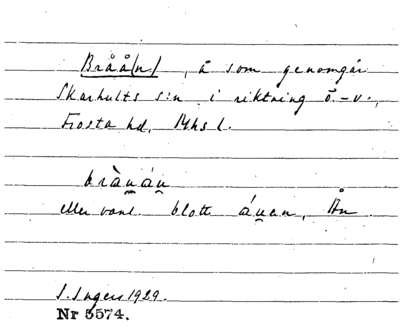 Bråå(n), å som genomgår
Skarhults s:n i riktning ö.-v.,
Frosta hd, Mhs l.
bràu̯áu̯
eller vanl. blott áu̯an, Ån.
I. Ingers 1929.
Nr 5574.